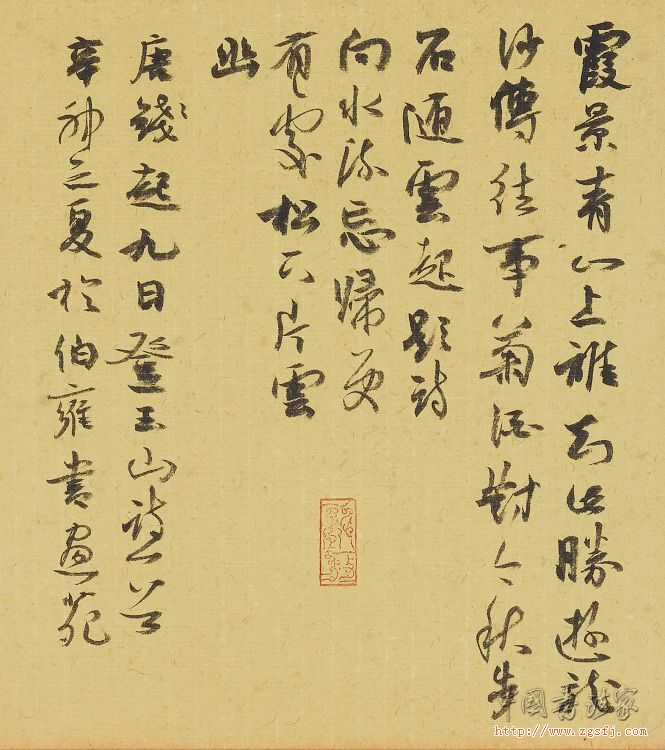 霞景青山上誰知此勝遊龍
沙傳往事菊酒對今秋步
石随雲起題詩
向水流忘歸更
有處松下片雲
幽
唐錢起九日登玉山詩一首
辛卯之夏於伯雍書畫苑
http://www.zgsfj.com